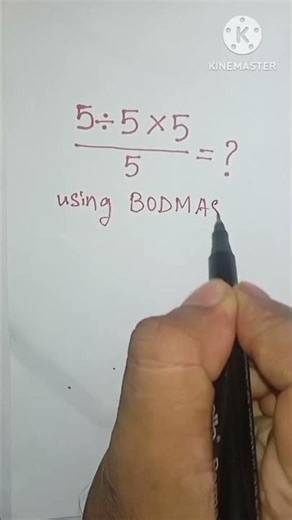 KINEMASTER
5÷5×5
5
=?
using BODMAS